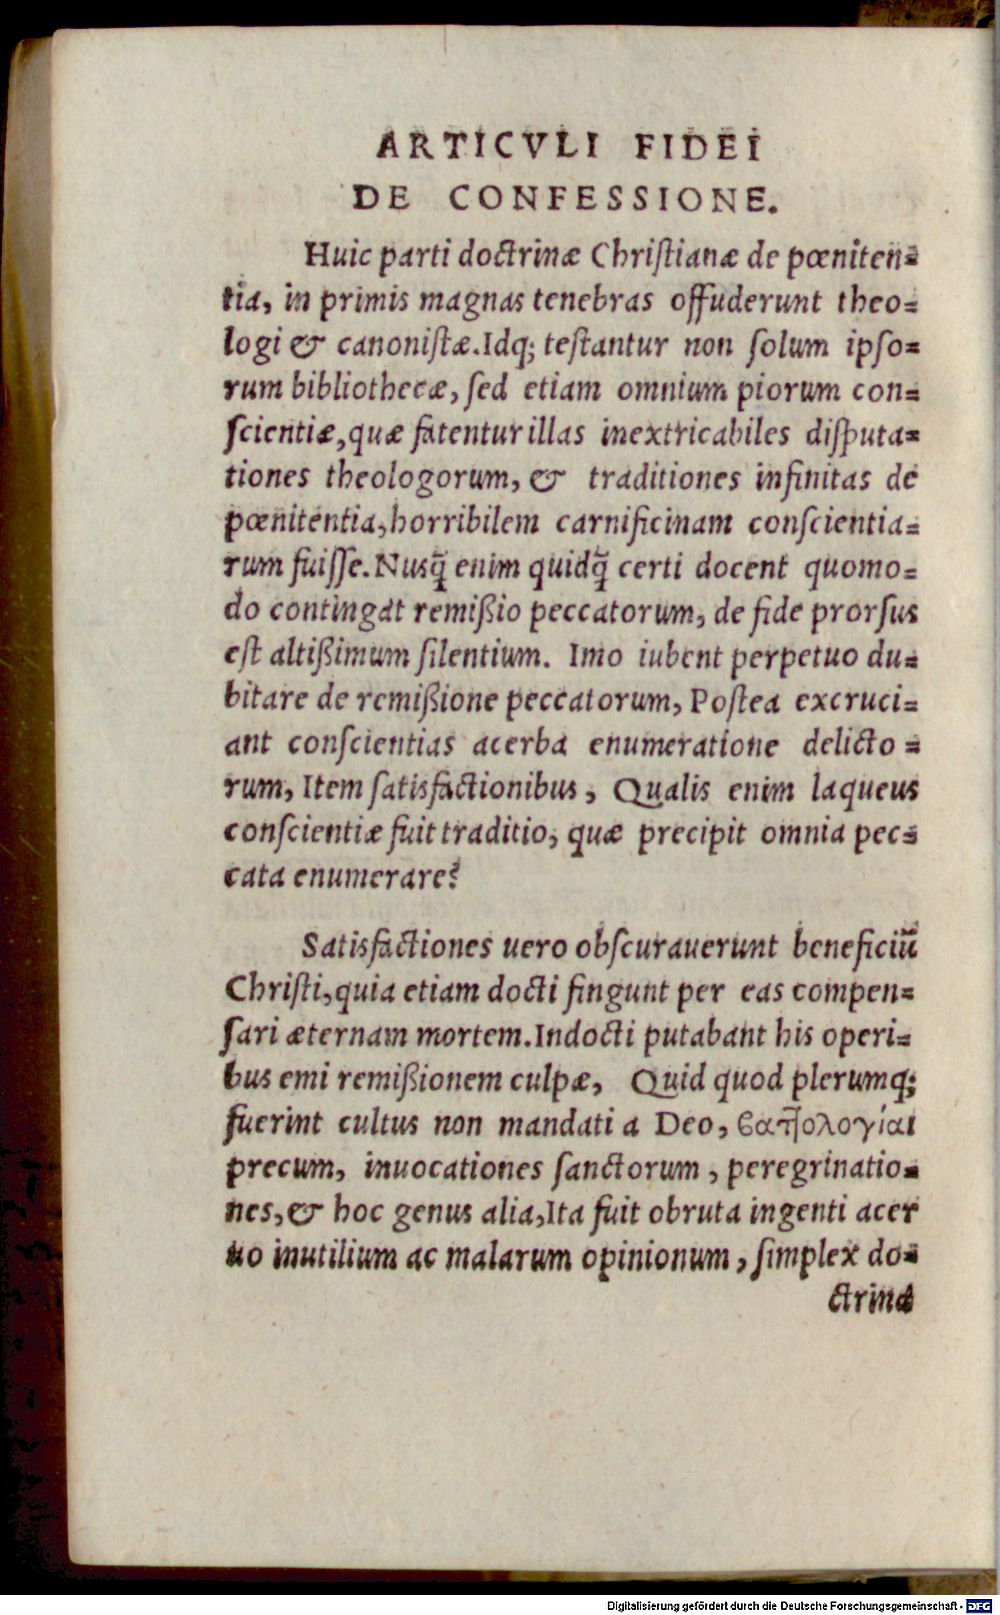 ARTICVLI FIDEI
DE CONFESSIONE.
Huic parti doctrinæ Chriſtianæ de pœniten=
tia, in primis magnas tenebras offuderunt theo=
logi & canoniſtæ. Idq; teſtantur non ſolum ipſo=
rum bibliothecæ, ſed etiam omnium piorum con=
ſcientiæ, quæ fatentur illas inextricabiles diſputa=
tiones theologorum, & traditiones infinitas de
pœnitentia, horribilem carnificinam conſcientia=
rum fuiſſe. Nusq̃ enim quidq̃ certi docent quomo=
do contingat remißio peccatorum, de fide prorſus
eſt altißimum ſilentium. Imo iubent perpetuo du=
bitare de remißione peccatorum, Poſtea excruci=
ant conſcientias acerba enumeratione delicto=
rum, Item ſatisfactionibus, Qualis enim laqueus
conſcientiæ fuit traditio, quæ precipit omnia pec=
cata enumerare?
Satisfactiones uero obſcurauerunt beneficiũ
Chriſti, quia etiam docti fingunt per eas compen=
ſari æternam mortem. Indocti putabant his operi=
bus emi remißionem culpæ, Quid quod plerumq;
fuerint cultus non mandati a Deo, βατlολογίαι
precum, inuocationes ſanctorum, peregrinatio=
nes, & hoc genus alia, Ita fuit obruta ingenti acer
uo inutilium ac malarum opinionum, ſimplex do=
ctrina
Digitalisierung gefördert durch die Deutsche Forschungsgemeinschaft - DFG